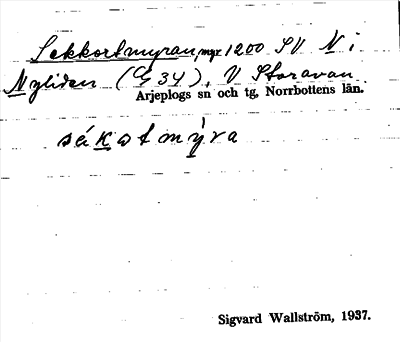 Sekkortmyran, myr 1200 SV N i
Nyliden (G 34), V Storavan
Arjeplogs sn och tg, Norrbottens län.
sékotmỳra
Sigvard Wallström, 1937.